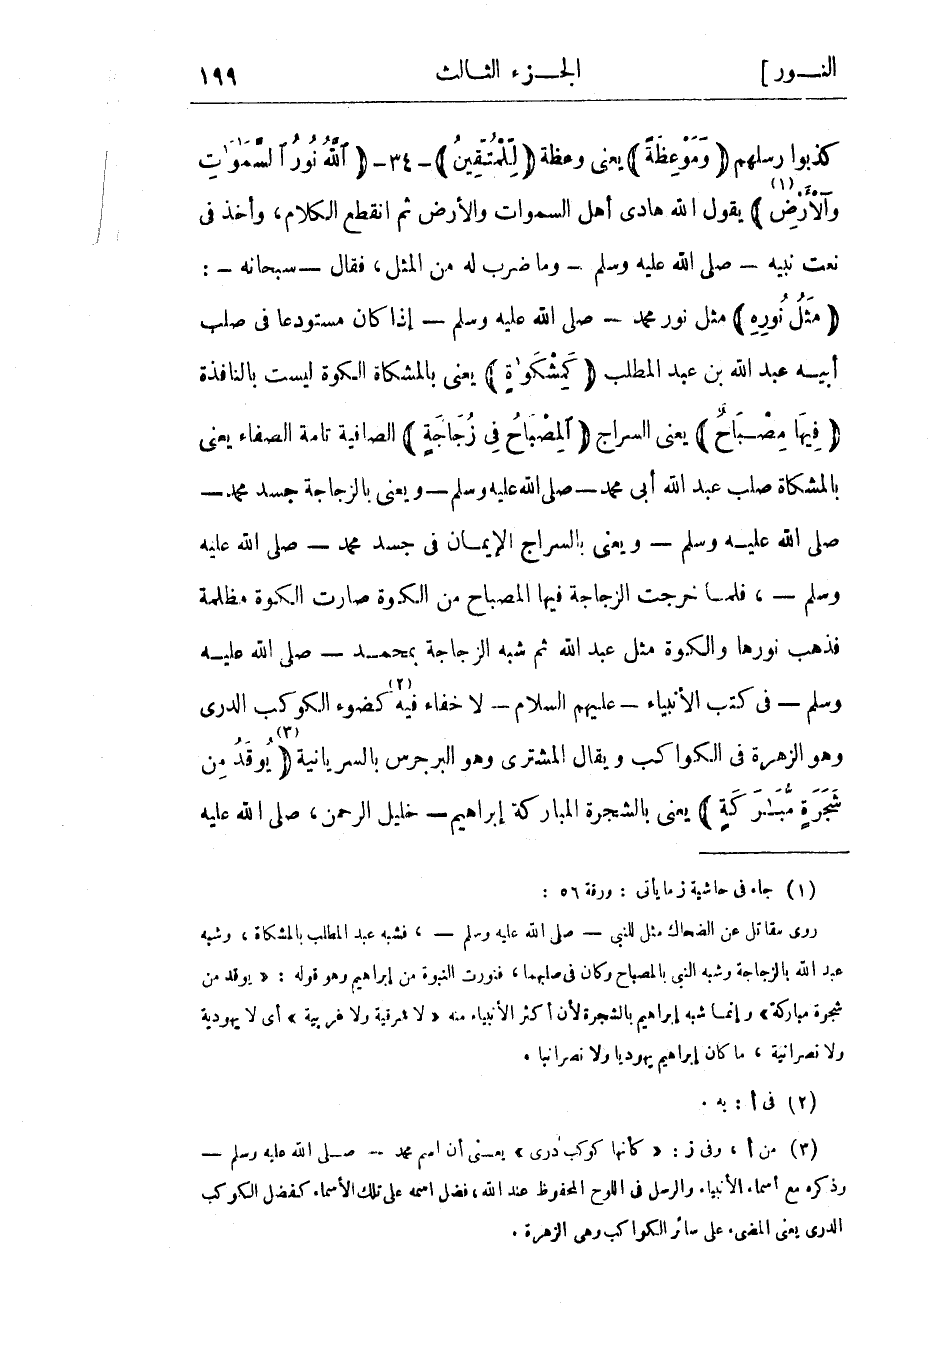 النــور] الجــزء الثــالث ١٩٩
كذبوا رسلهم ﴿ وَمَوْعِظَةً ﴾ يعنى وعظة ﴿ لِّلْمُتَّقِينَ ﴾ ـ ٣٤ ـ ﴿ ٱللَّهُ نُورُ ٱلسَّمَٰوَٰتِ
وَٱلْأَرْضِ ﴾ (١) يقول الله هادى أهل السموات والأرض ثم انقطع الكلام، وأخذ فى
نعت نبيه — صلى الله عليه وسلم — وما ضرب له من المثل، فقال — سبحانه — :
﴿ مَثَلُ نُورِهِ ﴾ مثل نور محمد — صلى الله عليه وسلم — إذا كان مستودعا فى صلب
أبيــه عبد الله بن عبد المطلب ﴿ كَمِشْكَوٰةٍ ﴾ يعنى بالمشكاة الكوة ليست بالنافذة
﴿ فِيهَا مِصْـبَاحٌ ﴾ يعنى السراج ﴿ ٱلْمِصْبَاحُ فِى زُجَاجَةٍ ﴾ الصافية تامة الصفاء يعنى
بالمشكاة صلب عبد الله أبى محمد — صلى الله عليه وسلم — ويعنى بالزجاجة جسد محمد —
صلى الله عليــه وسلم — ويعنى بالسراج الإيمــان فى جسد محمد — صلى الله عليه
وسلم — ، فلمــا خرجت الزجاجة فيها المصباح من الكوة صارت الكوة مظلمة
فذهب نورها والكوة مثل عبد الله ثم شبه الزجاجة بمحمــد — صلى الله عليــه
وسلم — فى كتب الأنبياء — عليهم السلام — لا خفاء فيه (٢) كضوء الكوكب الدرى
وهو الزهرة فى الكواكب ويقال المشترى وهو البرجرس بالسريانية (٣) ﴿ يُوقَدُ مِن
شَجَرَةٍ مُّبَـٰرَكَةٍ ﴾ يعنى بالشجرة المباركة إبراهيم — خليل الرحمن، صلى الله عليه
(١) جاء فى حاشية ز ما يأتى : ورقة ٥٦ :
روى مقاتل عن الضحاك مثل للنبي — صلى الله عليه وسلم — ، فشبه عبد المطلب بالمشكاة، وشبه
عبد الله بالزجاجة وشبه النبي بالمصباح وكان فى صلبهما، فنورت النبوة من إبراهيم وهو قوله : « يوقد من
شجرة مباركة» وإنمــا شبه إبراهيم بالشجرة لأن أكثر الأنبياء منه « لا شرقية ولا غربية » أى لا يهودية
ولا نصرانية، ما كان إبراهيم يهوديا ولا نصرانيا .
(٢) فى أ : به .
(٣) من أ ، وفى ز : « كأنها كوكب دُرى » يعــنى أن اسم محمد — صــلى الله عليه وسلم —
وذكره مع أسماء الأنبياء والرسل فى اللوح المحفوظ عند الله، فضل اسمه على تلك الأسماء كفضل الكوكب
الدرى يعنى المضىء على سائر الكواكب وهى الزهرة .